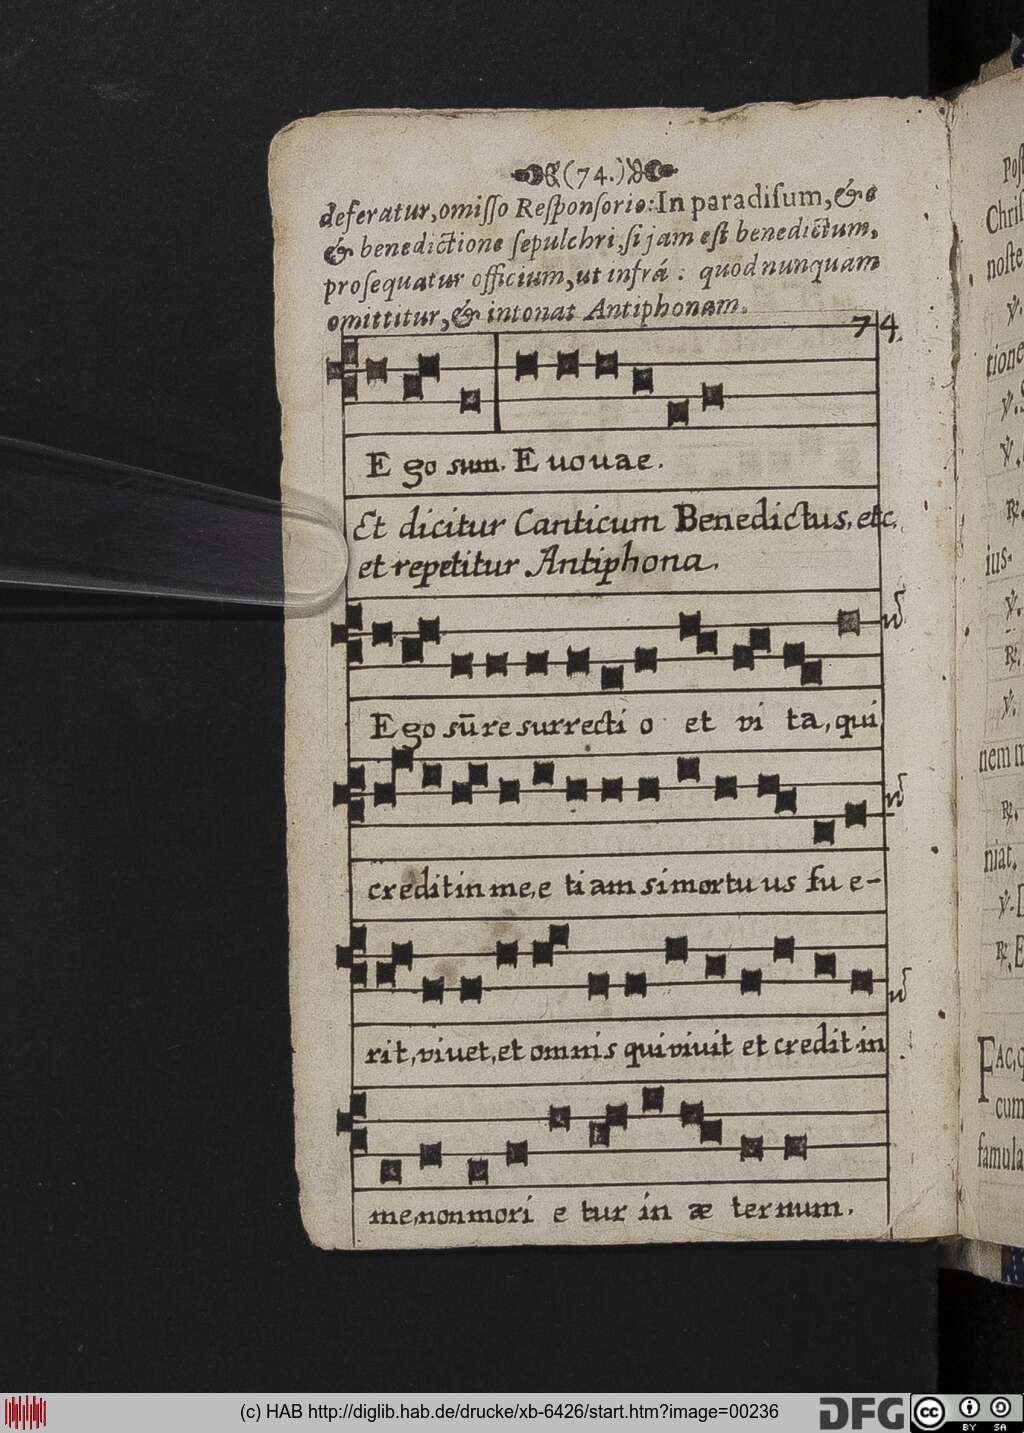 (74.)
deferatur, omiſſo Reſponſorio: In paradiſum, &c
& benedictione ſepulchri, ſi jam eſt benedictum,
proſequatur officium, ut infrá: quod nunquam
omittitur, & intonat Antiphonam.
74.
Ego sum. Euouae.
Et dicitur Canticum Benedictus, etc,
et repetitur Antiphona.
Ego sūresurrecti o et vi ta, qui
creditin me, e tiam simortu us fu e-
rit, viuet, et omnis quiviuit et credit in
me, nonmori e tur in æ ternum.
Poſ
Chriſ
noſte
℣.
tione
℣. S
℣.
℟.
ius.
℣.
℟.
℣.
nem m
℟.
niat.
℣.
℟. E
FAC, q
cum
famula
(c) HAB http://diglib.hab.de/drucke/xb-6426/start.htm?image=00236
DFG
cc
BY SA